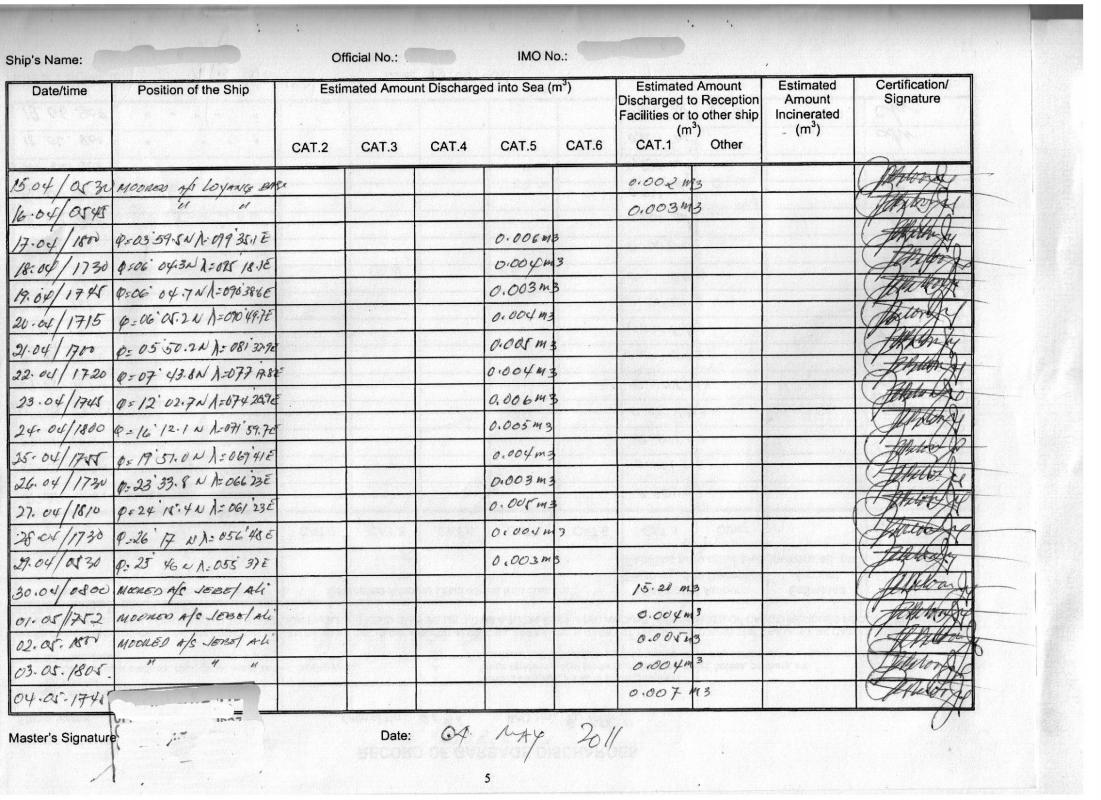 Ship's Name: Official No.: IMO No.:
Date/time Position of the Ship Estimated Amount Discharged into Sea (m³) Estimated Amount Discharged to Reception Facilities or to other ship (m³) Estimated Amount Incinerated (m³) Certification/ Signature
CAT.2 CAT.3 CAT.4 CAT.5 CAT.6 CAT.1 Other
15.04/0530 MOORED A/S LOYANG BASE 0.002 m3
16.04/0545 " " 0.003 m3
17.04/1800 φ=03°59.5N λ=099°35.1E 0.006 m3
18.04/1730 φ=06° 04.3N λ=095° 18.1E 0.004 m3
19.04/1745 φ=06° 04.7N 0.003 m3
20.04/1715 φ=06° 05.2N λ=090°49.7E 0.004 m3
21.04/1700 φ=05°50.2N 0.005 m3
22.04/1720 φ=07° 43.8N 0.004 m3
23.04/1745 φ=12° 02.7N 0.006 m3
24.04/1800 φ=16° 12.1N λ=071°59.7E 0.005 m3
25.04/1755 φ=19°57.0N λ=069°41E 0.004 m3
26.04/1730 φ=23°33.8N λ=066°23E 0.003 m3
27.04/1810 φ=24° 15.4N λ=061°23E 0.005 m3
28.04/1730 φ=26° 17 N λ=056°48E 0.004 m3
29.04/0530 φ=25° 46N λ=055° 37E 0.003 m3
30.04/0800 MOORED A/S JEBEL ALI 15.20 m3
01.05/1752 MOORED A/S JEBEL ALI 0.004 m3
02.05.1800 MOORED A/S JEBEL ALI 0.005 m3
03.05.1805. " " " 0.004 m3
04.05.1745 0.007 m3
Master's Signature Date: 04 MAY 2011
5